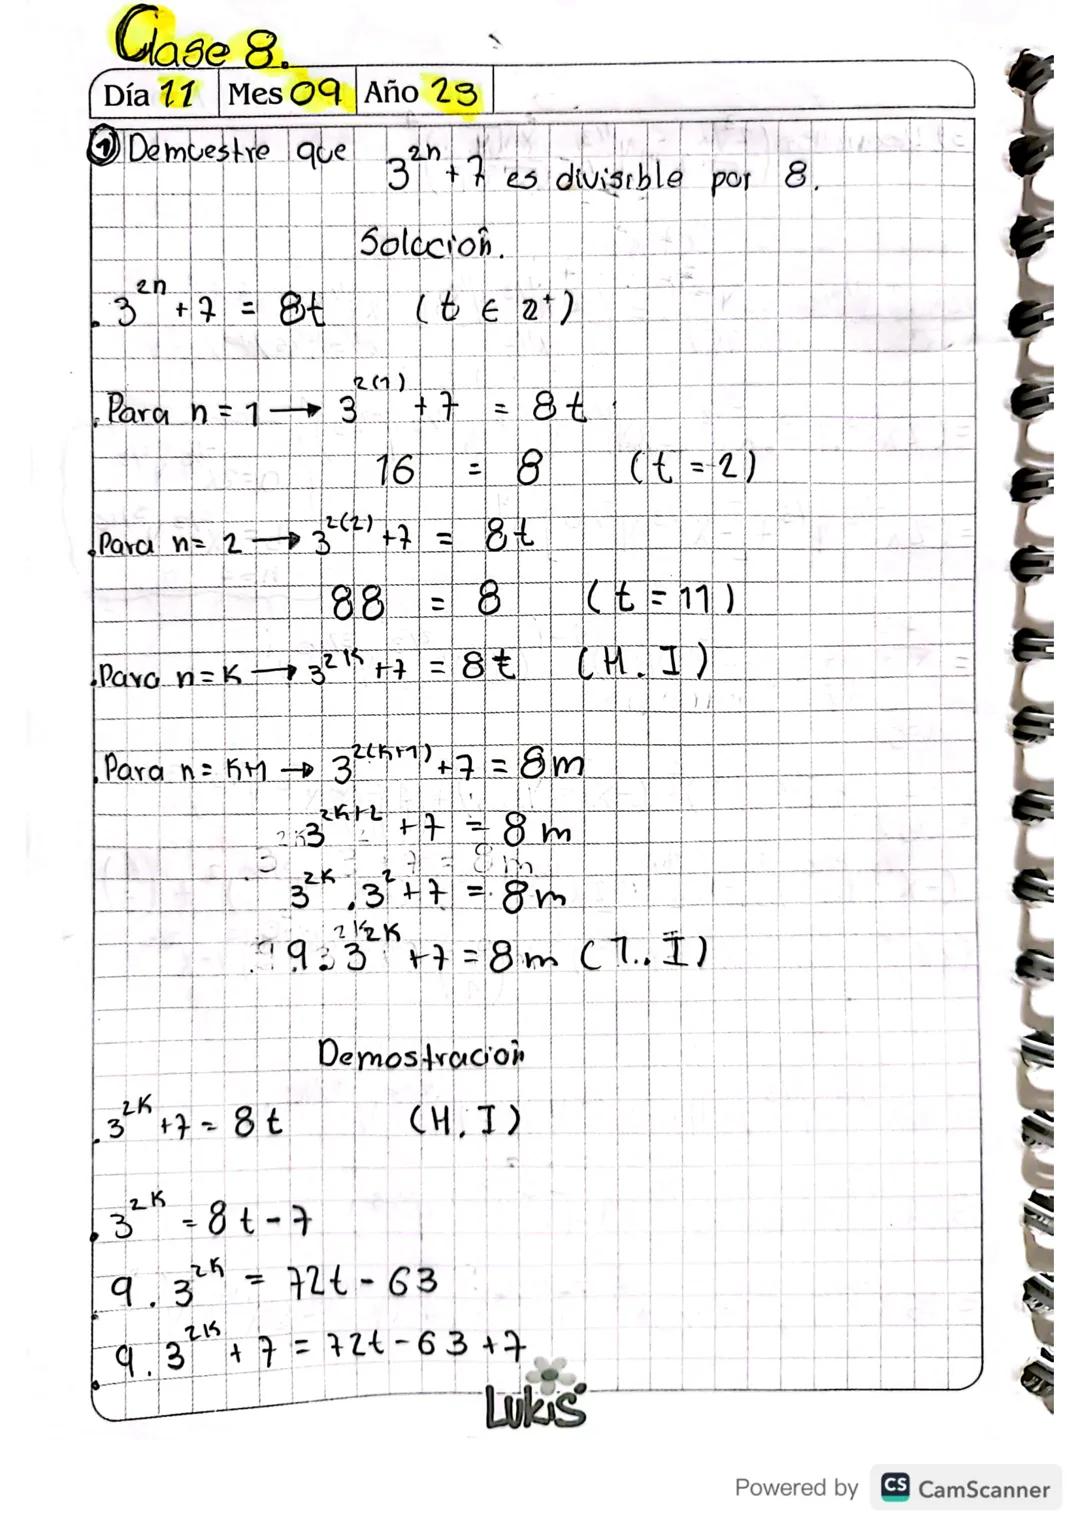 Clase 8.
Día 11 Mes 09 Año 23
① Demuestre que 3^{2n} + 7 es divisible por 8.
Solucion.
3^{2n} + 7 = 8t (t ∈ z⁺)
Para n = 1 → 3^{2(1)} + 7 = 8t
16 = 8 (t = 2)
Para n = 2 → 3^{2(2)} + 7 = 8t
88 = 8 (t = 11)
Para n = K → 3^{2K} + 7 = 8t (H. I)
Para n = K+1 → 3^{2(K+1)} + 7 = 8m
3^{2K+2} + 7 = 8m
3^{2K} . 3^{2} + 7 = 8m
9 . 3^{2K} + 7 = 8m (T. I)
Demostracion
3^{2K} + 7 = 8t (H. I)
3^{2K} = 8t - 7
9 . 3^{2K} = 72t - 63
9 . 3^{2K} + 7 = 72t - 63 + 7
Lukis
Powered by CS CamScanner